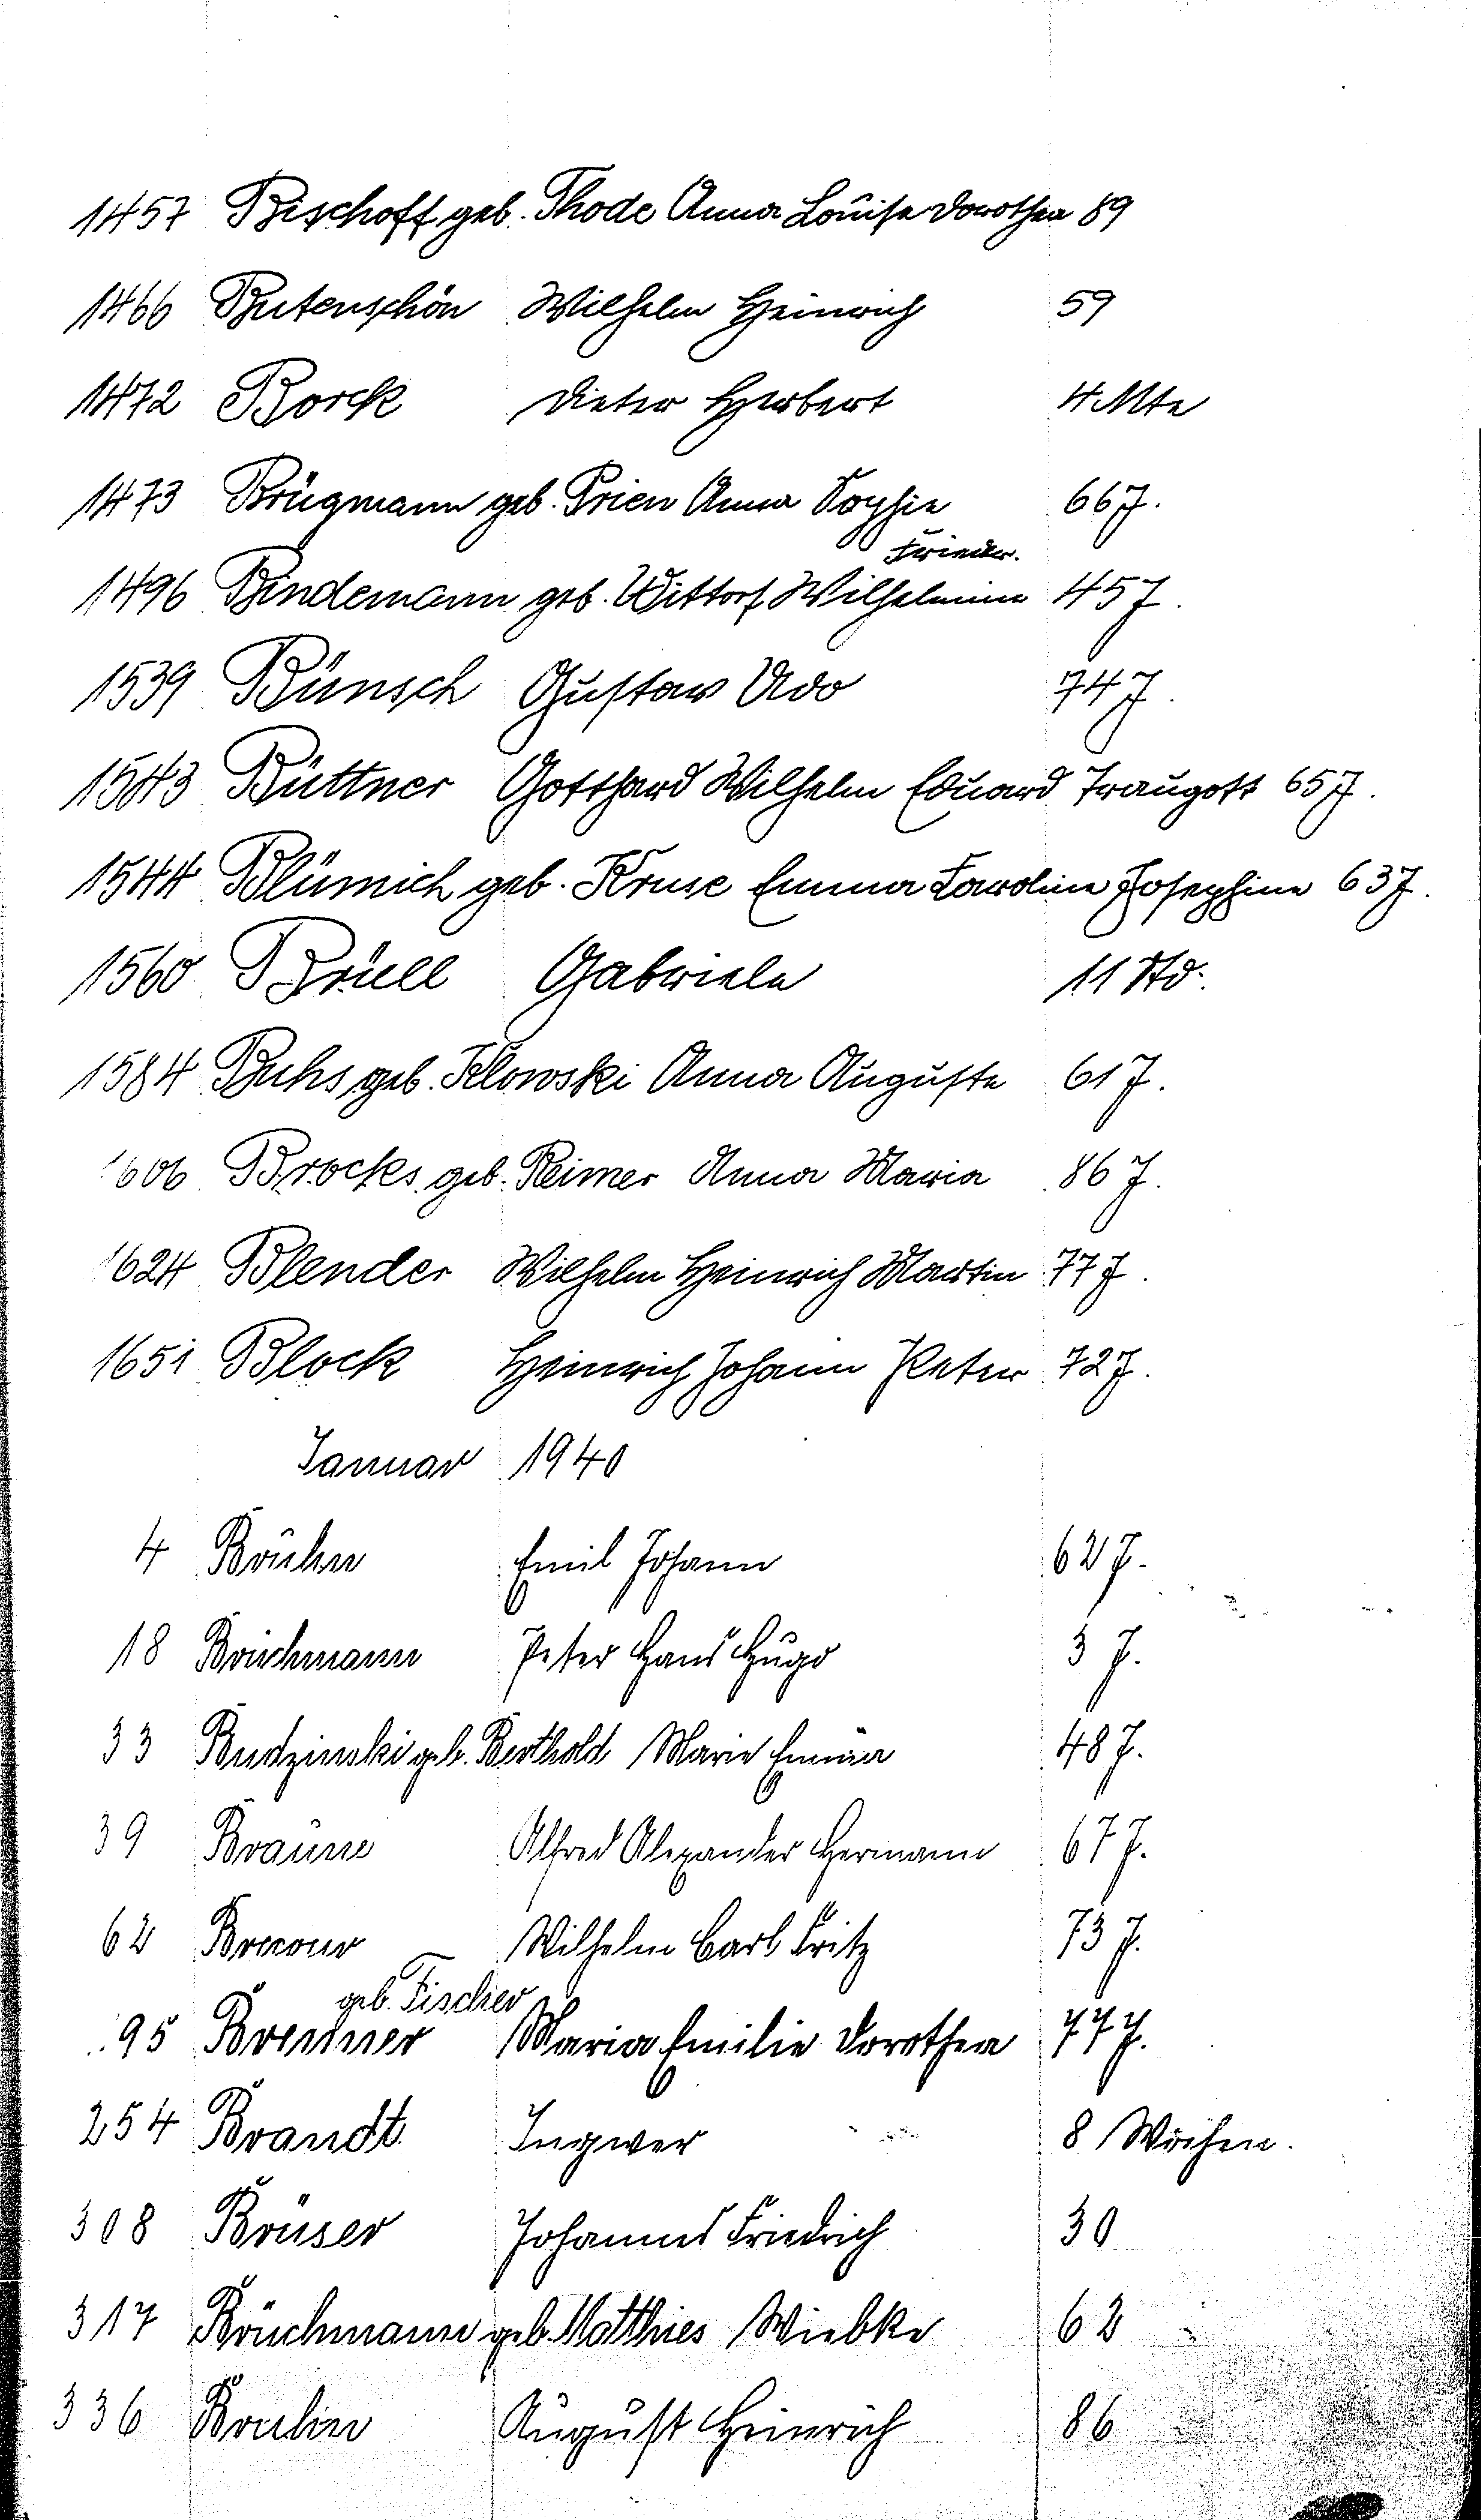 1457 Bischoff geb. Thode Anna Louise Dorothea 89
1466 Butenschön Wilhelm Heinrich 59
1472 Borck Dieter Herbert 4 Mte
1473 Brügmann geb. Prien Anna Sophie 66 J.
Frieder.
1496 Bindemann geb. Wittorf Wilhelmine 45 J.
1539 Bünsch Gustav Udo 74 J.
1543 Büttner Gotthard Wilhelm Eduard Traugott 65 J.
1544 Blümich geb. Kruse Emma Karoline Josephine 63 J.
1560 Brüll Gabriele 11 Std.
1584 Buhs geb. Klowski Anna Auguste 61 J.
1606 Brocks geb. Reimer Anna Maria 86 J.
1624 Blender Wilhelm Heinrich Martin 77 J.
1651 Block Heinrich Johann Peter 72 J.
Januar 1940
4 Bruhn Emil Johann 62 J.
18 Peter Hans Hugo 3 J.
33 Budzinski geb. Berthold Marie Emma 48 J.
39 Braune Alfred Alexander Hermann 67 J.
62 Wilhelm Carl Fritz 73 J.
geb. Fischer
95 Maria Emilie Dorothea 77 J.
254 Brandt Ingwer 8 Wochen.
308 Brüser Johannes Friedrich 30
317 Brüchmann geb. Matthies Wiebke 62
336 August Heinrich 86